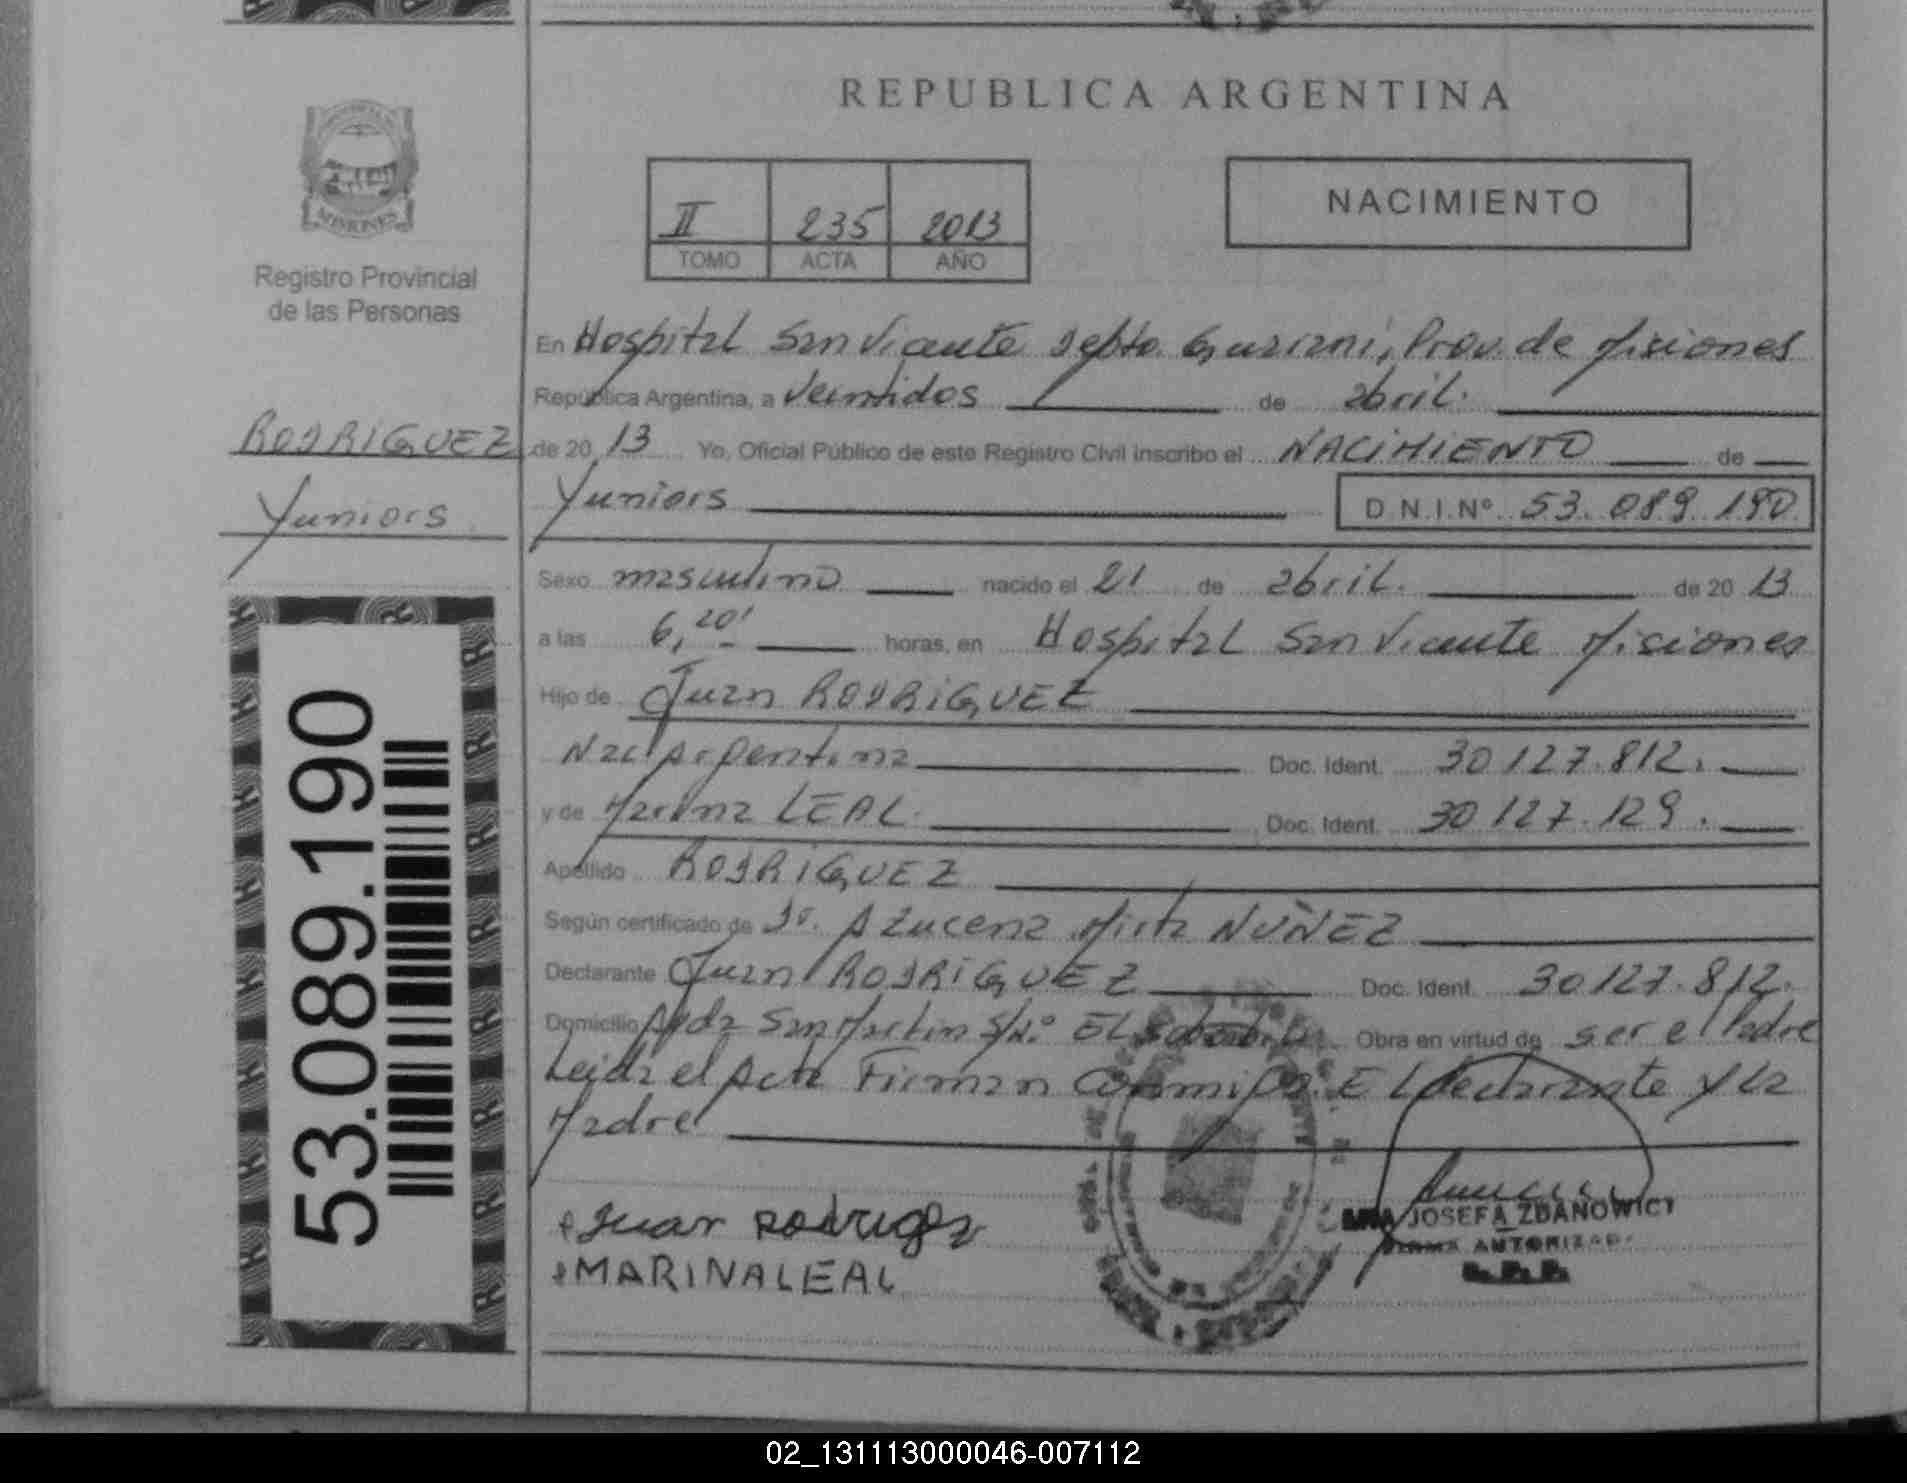 REPUBLICA ARGENTINA
MISIONES
Registro Provincial
de las Personas
II 235 2013
TOMO ACTA AÑO
NACIMIENTO
RODRIGUEZ
Yuniors
53.089.190
En Hospital San Vicente Depto. Guarani, Prov. de Misiones
República Argentina, a Veintidos de abril.
de 20 13 Yo, Oficial Público de este Registro Civil inscribo el NACIMIENTO de
Yuniors D.N.I.Nº 53.089.190
Sexo masculino nacido el 21 de abril. de 20 13
a las 6,20' horas, en Hospital San Vicente Misiones
Hijo de Juan RODRIGUEZ
Nac Argentina Doc. Ident. 30.127.812.
y de Marina LEAL Doc. Ident. 30.127.129.
Apellido RODRIGUEZ
Según certificado de Dr. Azucena Mirta NUÑEZ
Declarante Juan RODRIGUEZ Doc. Ident. 30.127.812.
Domicilio Avda San Martin S/Nº EL Obra en virtud de ser el Padre
Leida el Acta Firman Conmigo. El declarante y la
Madre
Juan Rodrigez
MARINA LEAL
ANA JOSEFA ZDANOWICZ
FIRMA AUTORIZADA
R.P.P.
02_131113000046-007112